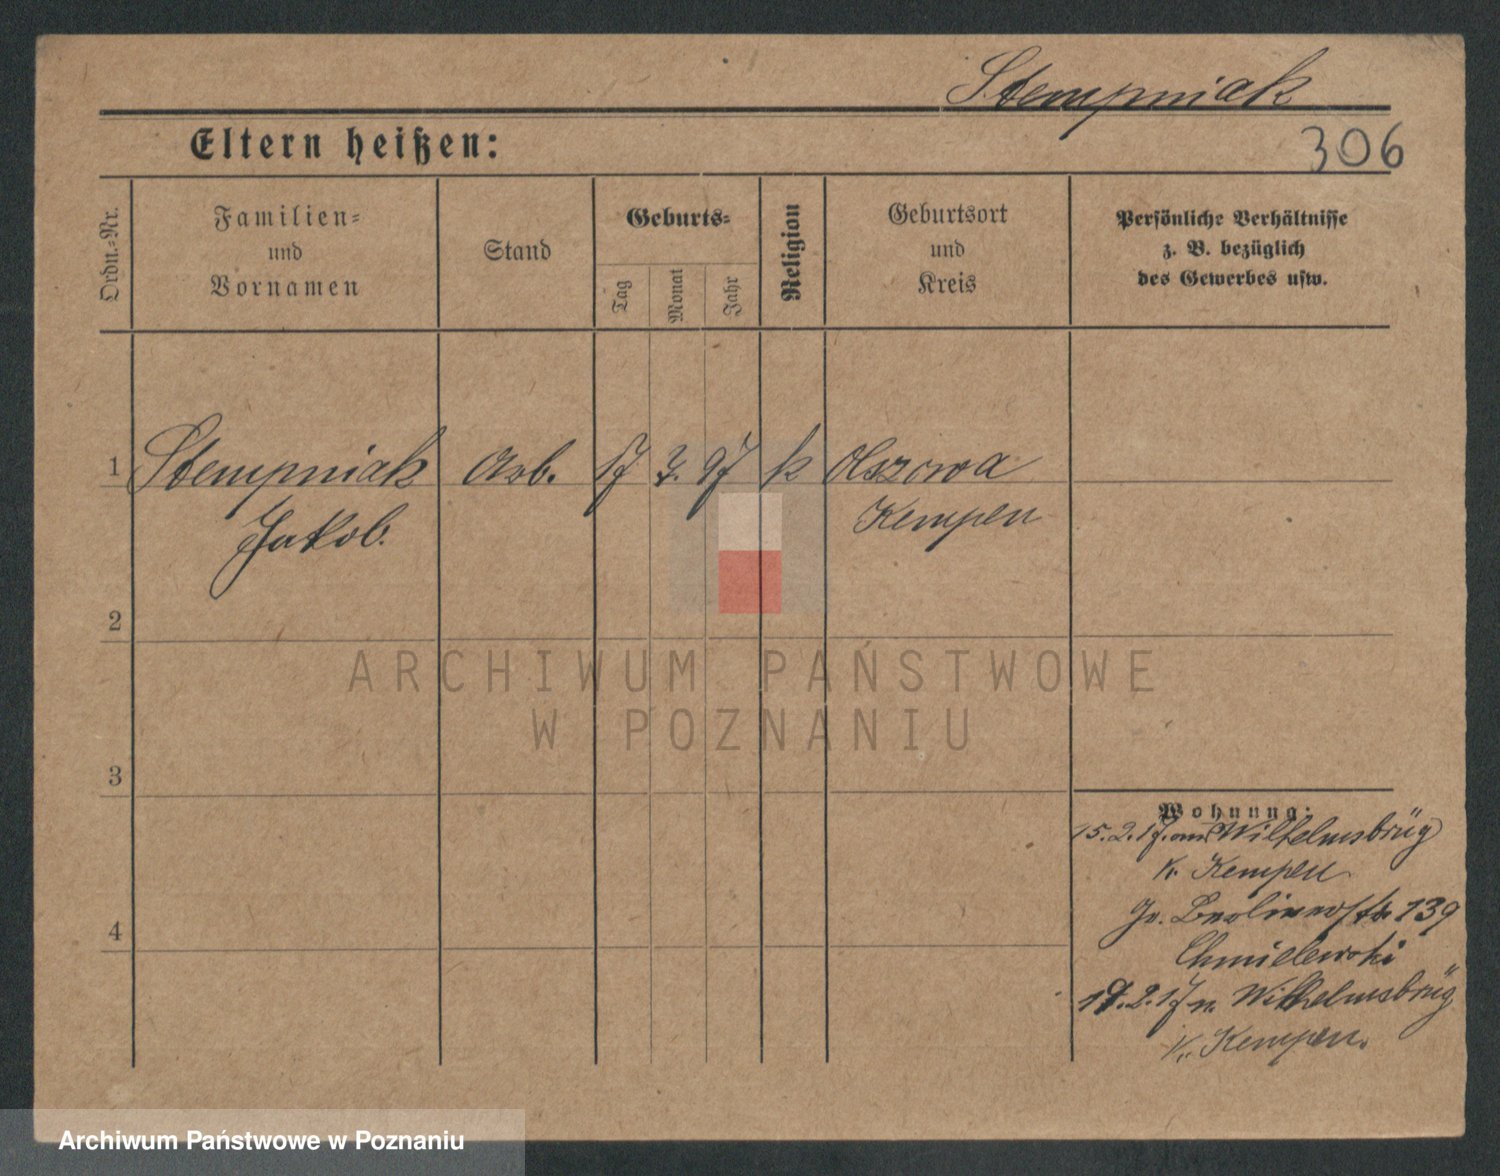 Stempniak
Eltern heißen:
306
Ordn.-Nr.
Familien-
und
Vornamen
Stand
Geburts-
Tag
Monat
Jahr
Religion
Geburtsort
und
Kreis
Persönliche Verhältnisse
z. B. bezüglich
des Gewerbes usw.
1 Stempniak Arb. 17 3. 97 k Olszowa
Jakob. Kempen
2
3
4
Wohnung:
15.2.17. am Wilhelmsbrüg
K. Kempen
Gr. Berlinerstr. 139
Chmielewski
17.2.17 n. Wilhelmsbrüg
K. Kempen.
ARCHIWUM PAŃSTWOWE
W POZNANIU
Archiwum Państwowe w Poznaniu